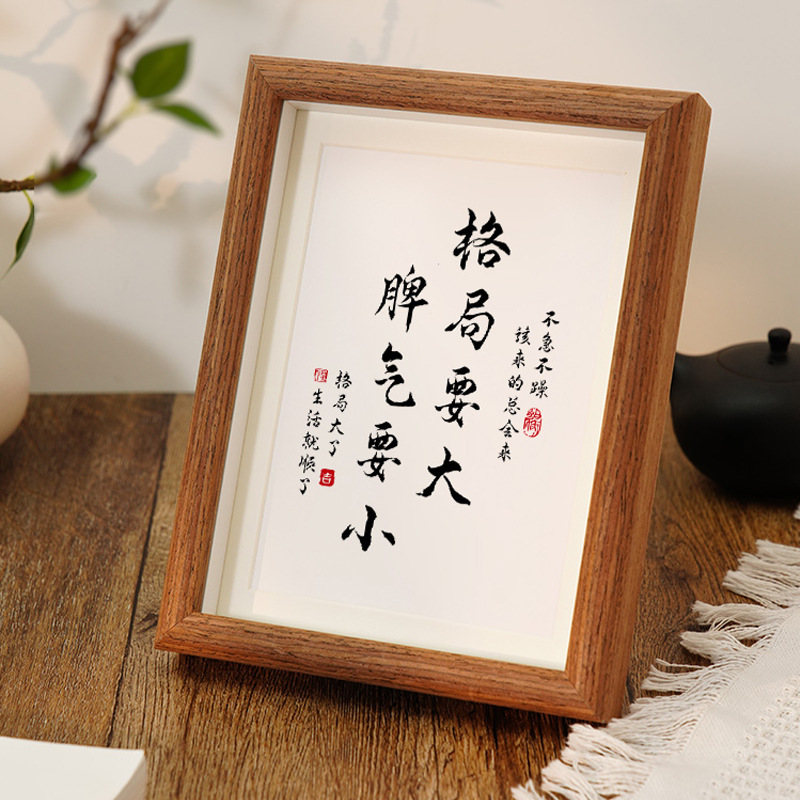 不急不躁
该来的总会来
格局要大
脾气要小
格局大了
生活就顺了
吉